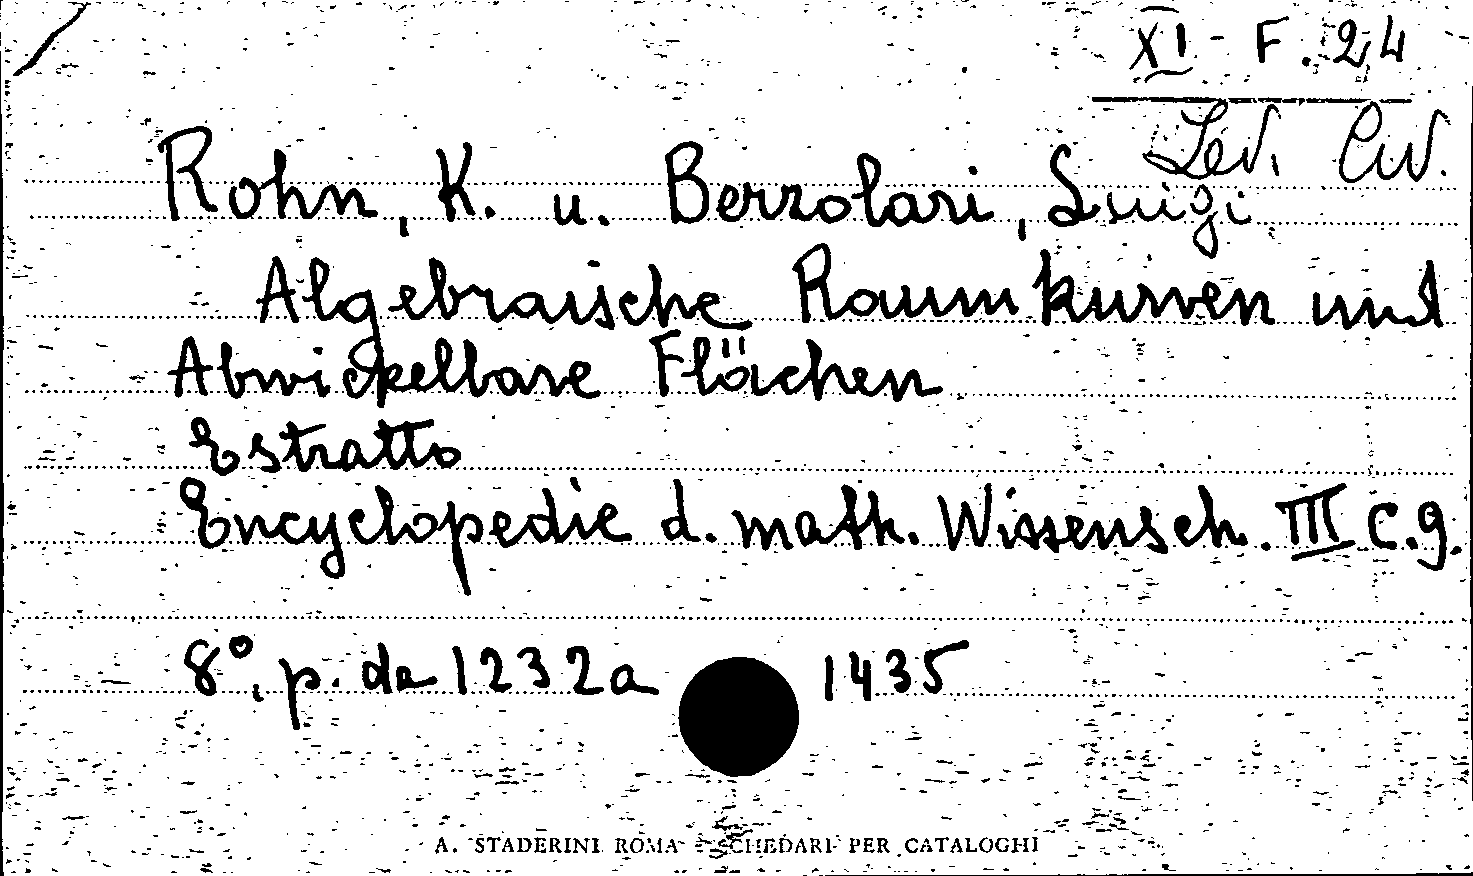 XI - F. 24
Lev. Civ.
Rohn, K. u. Berzolari, Luigi
Algebraische Raumkurven und
Abwickelbare Flächen
Estratto
Encyclopedie d. math. Wissensch. III C.9.
8°. p. da 1232 a 1435
A. STADERINI ROMA - SCHEDARI PER CATALOGHI